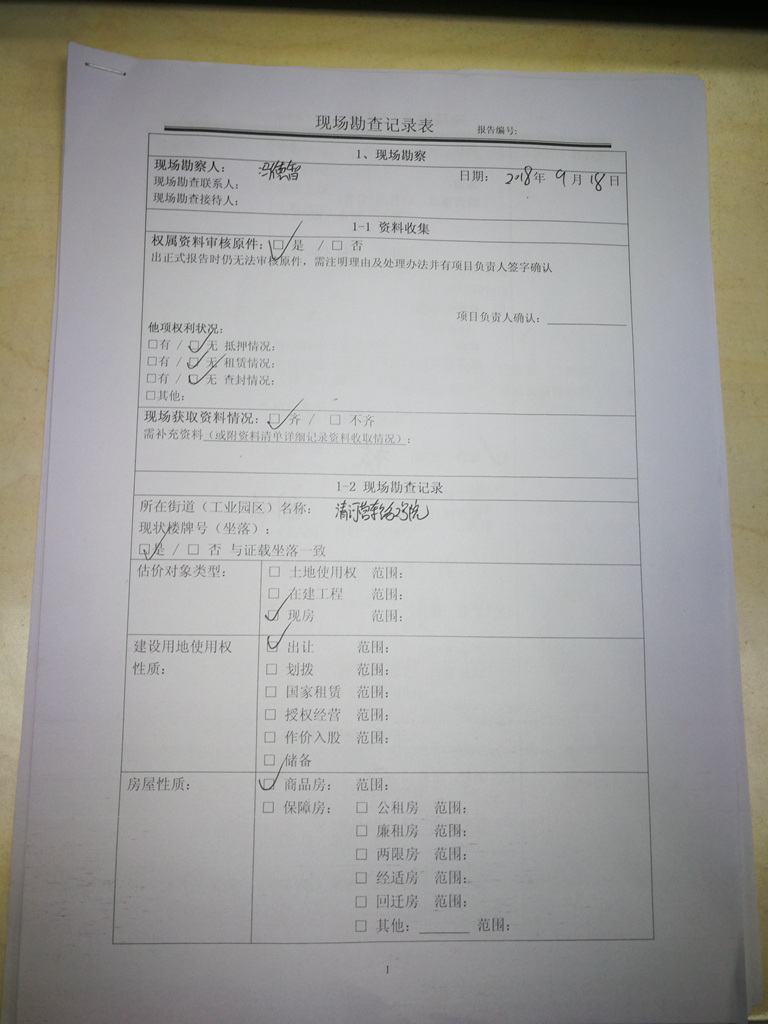 现场勘查记录表 报告编号:
1、现场勘察
现场勘察人:
日期: 2018年 9月 18日
现场勘查联系人:
现场勘查接待人:
1-1 资料收集
权属资料审核原件: □ 是 / □ 否
出正式报告时仍无法审核原件，需注明理由及处理办法并有项目负责人签字确认
项目负责人确认:
他项权利状况:
□有 / □ 无 抵押情况:
□有 / □ 无 租赁情况:
□有 / □ 无 查封情况:
□其他:
现场获取资料情况: □ 齐 / □ 不齐
需补充资料（或附资料清单详细记录资料收取情况）:
1-2 现场勘查记录
所在街道（工业园区）名称:
现状楼牌号（坐落）:
□是 / □ 否 与证载坐落一致
估价对象类型: □ 土地使用权 范围:
□ 在建工程 范围:
□ 现房 范围:
建设用地使用权 □ 出让 范围:
性质: □ 划拨 范围:
□ 国家租赁 范围:
□ 授权经营 范围:
□ 作价入股 范围:
□ 储备
房屋性质: □ 商品房: 范围:
□ 保障房: □ 公租房 范围:
□ 廉租房 范围:
□ 两限房 范围:
□ 经适房 范围:
□ 回迁房 范围:
□ 其他: 范围:
1